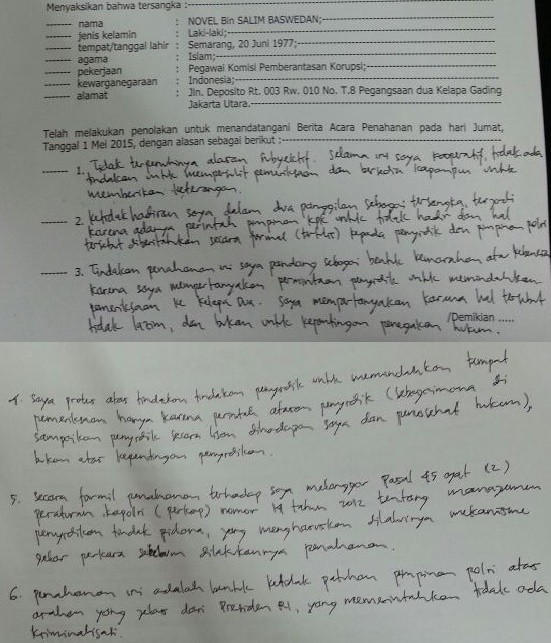 Menyaksikan bahwa tersangka :
------- nama : NOVEL Bin SALIM BASWEDAN;
------- jenis kelamin : Laki-laki;
------- tempat/tanggal lahir : Semarang, 20 Juni 1977;
------- agama : Islam;
------- pekerjaan : Pegawai Komisi Pemberantasan Korupsi;
------- kewarganegaraan : Indonesia;
------- alamat : Jln. Deposito Rt. 003 Rw. 010 No. T.8 Pegangsaan dua Kelapa Gading
Jakarta Utara.
Telah melakukan penolakan untuk menandatangani Berita Acara Penahanan pada hari Jumat,
Tanggal 1 Mei 2015, dengan alasan sebagai berikut :
------- 1. Tidak terpenuhinya alasan subyektif. Selama ini saya kooperatif, tidak ada
tindakan untuk mempersulit pemeriksaan dan bersedia kapanpun untuk
memberikan keterangan.
------- 2. Ketidakhadiran saya dalam dua panggilan sebagai tersangka, terjadi
karena adanya perintah pimpinan KPK untuk tidak hadir dan hal
tersebut diberitahukan secara formal (tertulis) kepada penyidik dan pimpinan polri
------- 3. Tindakan penahanan ini saya pandang sebagai bentuk kemarahan atau kebencian
karena saya mempertanyakan permintaan penyidik untuk memindahkan
pemeriksaan ke Kelapa Dua. Saya mempertanyakan karena hal tersebut
tidak lazim, dan bukan untuk kepentingan penegakan hukum.
/Demikian .....
4. Saya protes atas tindakan tindakan penyidik untuk memindahkan tempat
pemeriksaan hanya karena perintah atasan penyidik (sebagaimana di
sampaikan penyidik secara lisan dihadapan saya dan penasehat hukum),
bukan atas kepentingan penyidikan.
5. Secara formil penahanan terhadap saya melanggar Pasal 45 ayat (2)
peraturan kapolri (perkap) nomor 14 tahun 2012 tentang managemen
penyidikan tindak pidana, yang mengharuskan dilaluinya mekanisme
gelar perkara sebelum dilakukannya penahanan.
6. penahanan ini adalah bentuk ketidak patuhan pimpinan polri atas
arahan yang jelas dari Presiden RI, yang memerintahkan tidak ada
kriminalisasi.